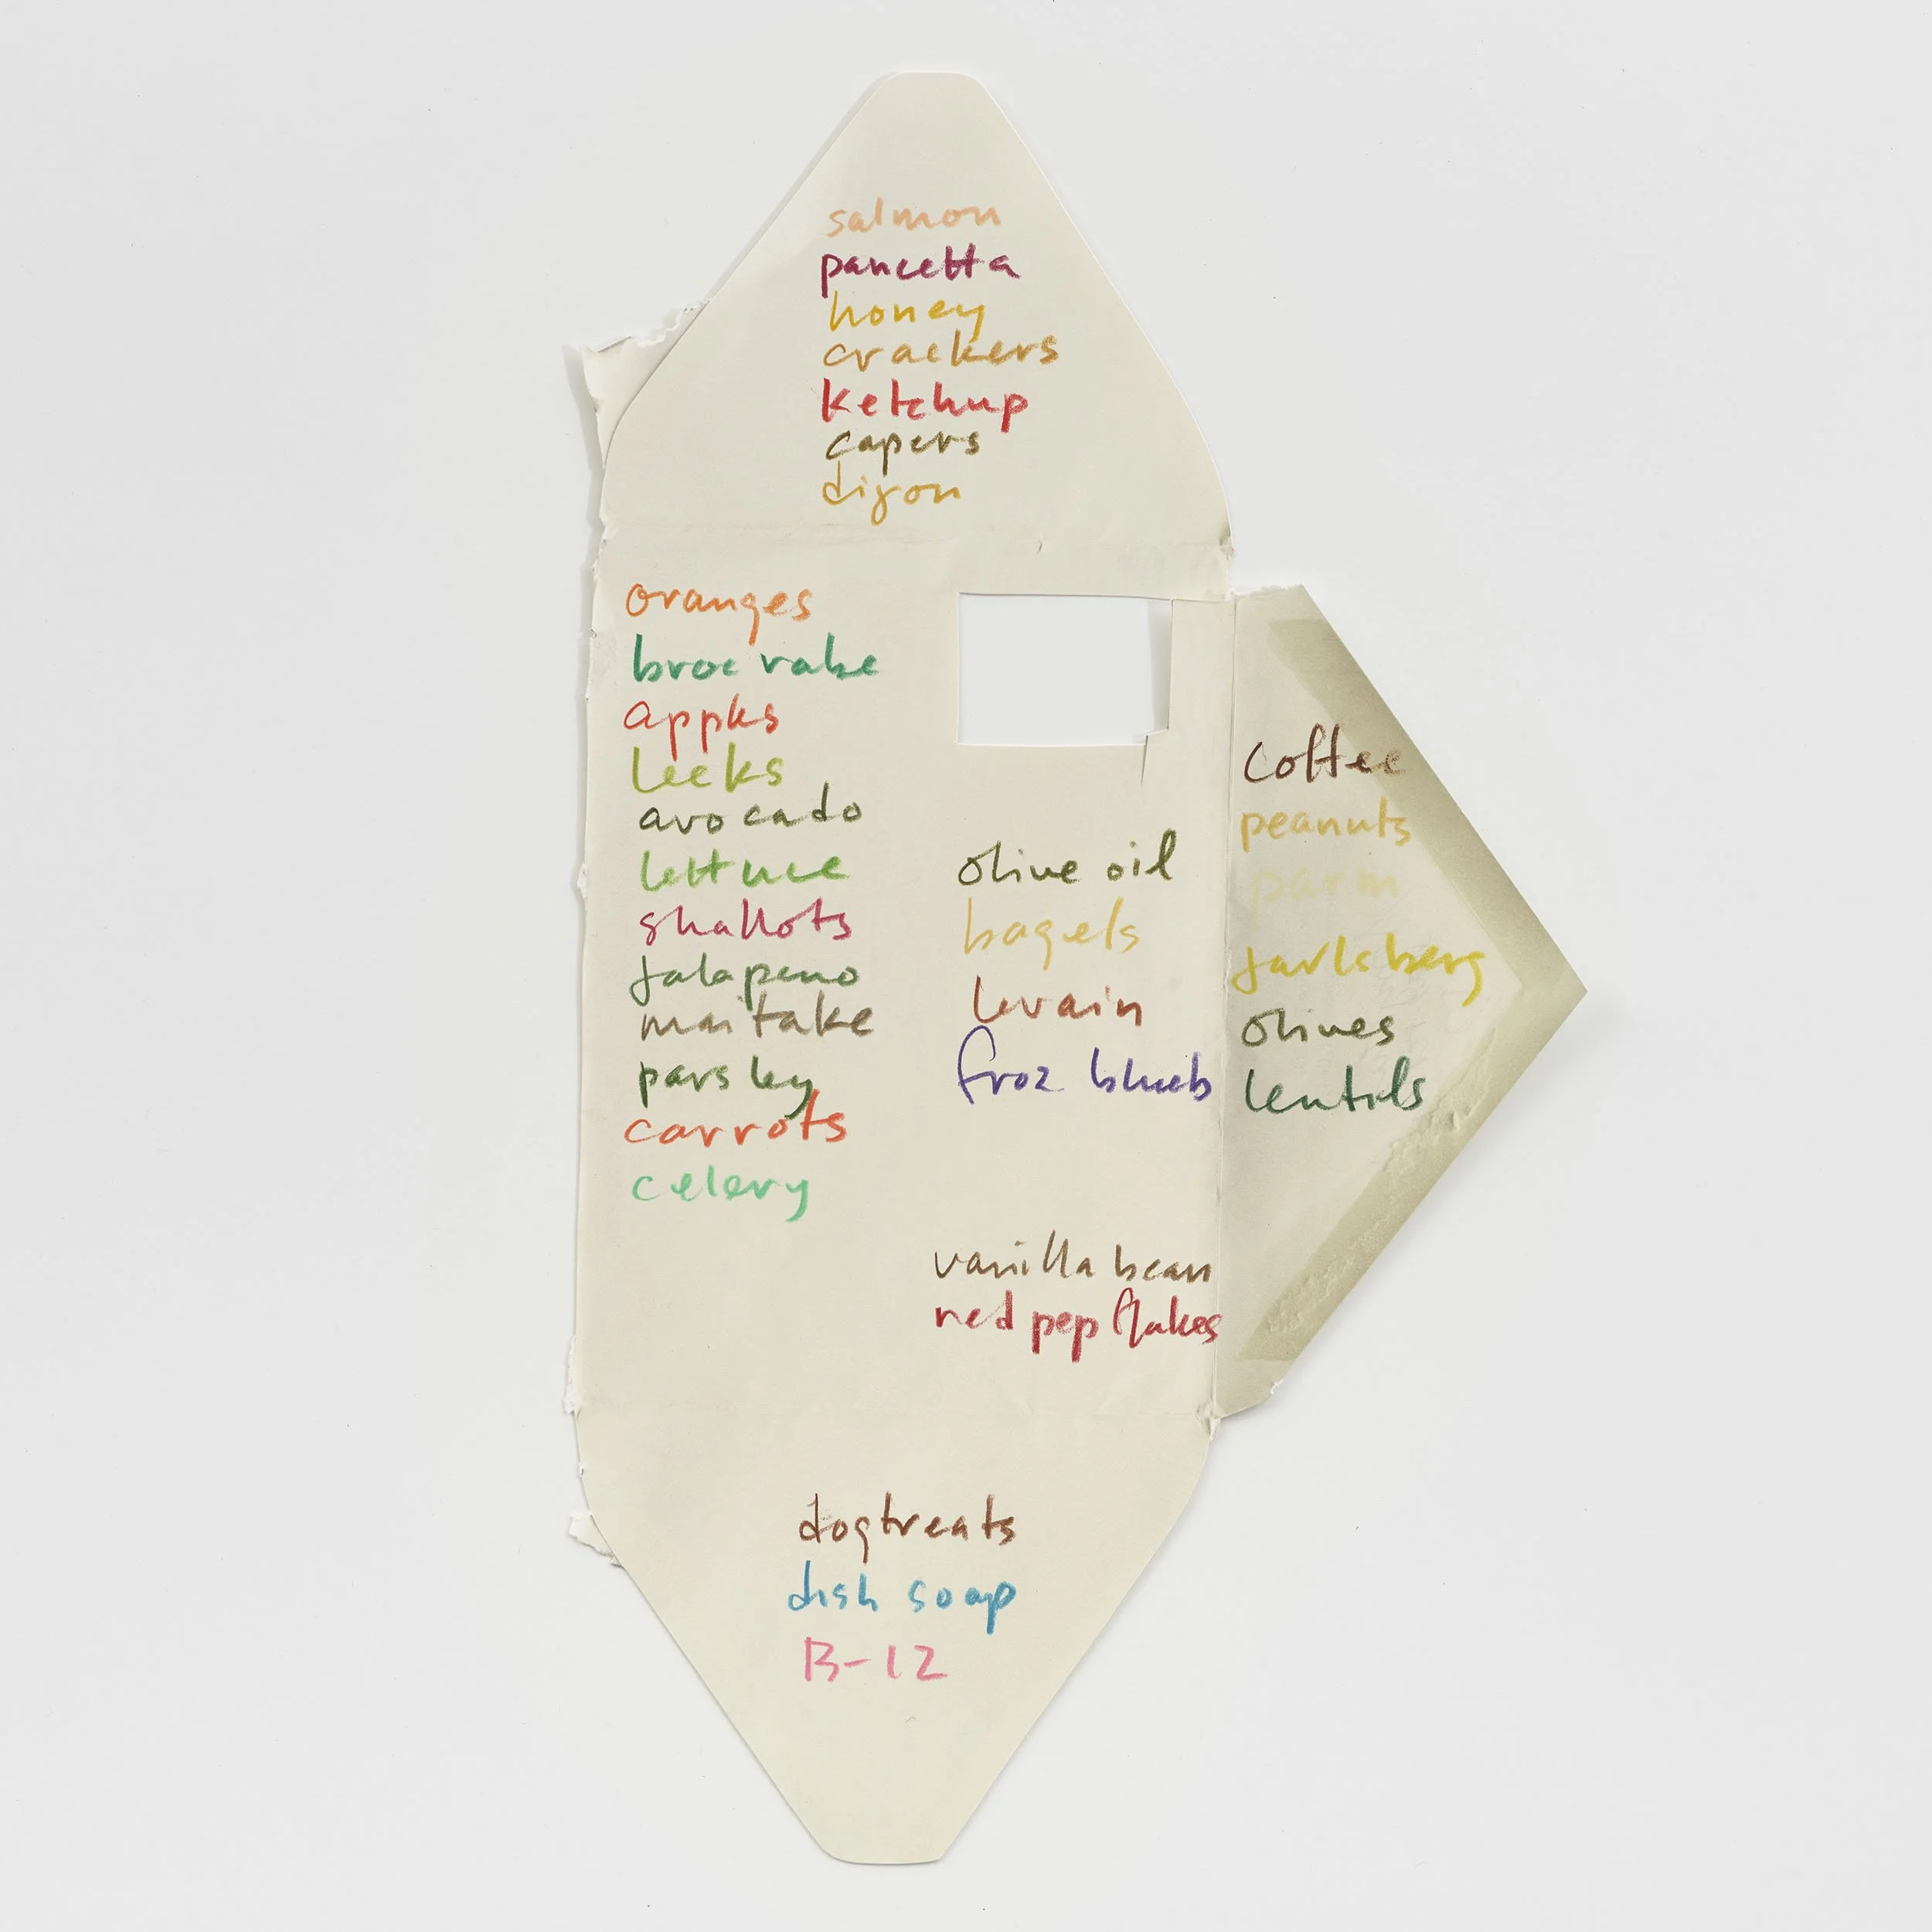 salmon
pancetta
honey
crackers
ketchup
capers
dijon
oranges
broc rabe
apples
leeks
avocado
lettuce
shallots
jalapeno
maitake
parsley
carrots
celery
olive oil
bagels
levain
froz blueb
vanilla bean
red pep flakes
coffee
peanuts
parm
jarlsberg
olives
lentils
dogtreats
dish soap
B-12